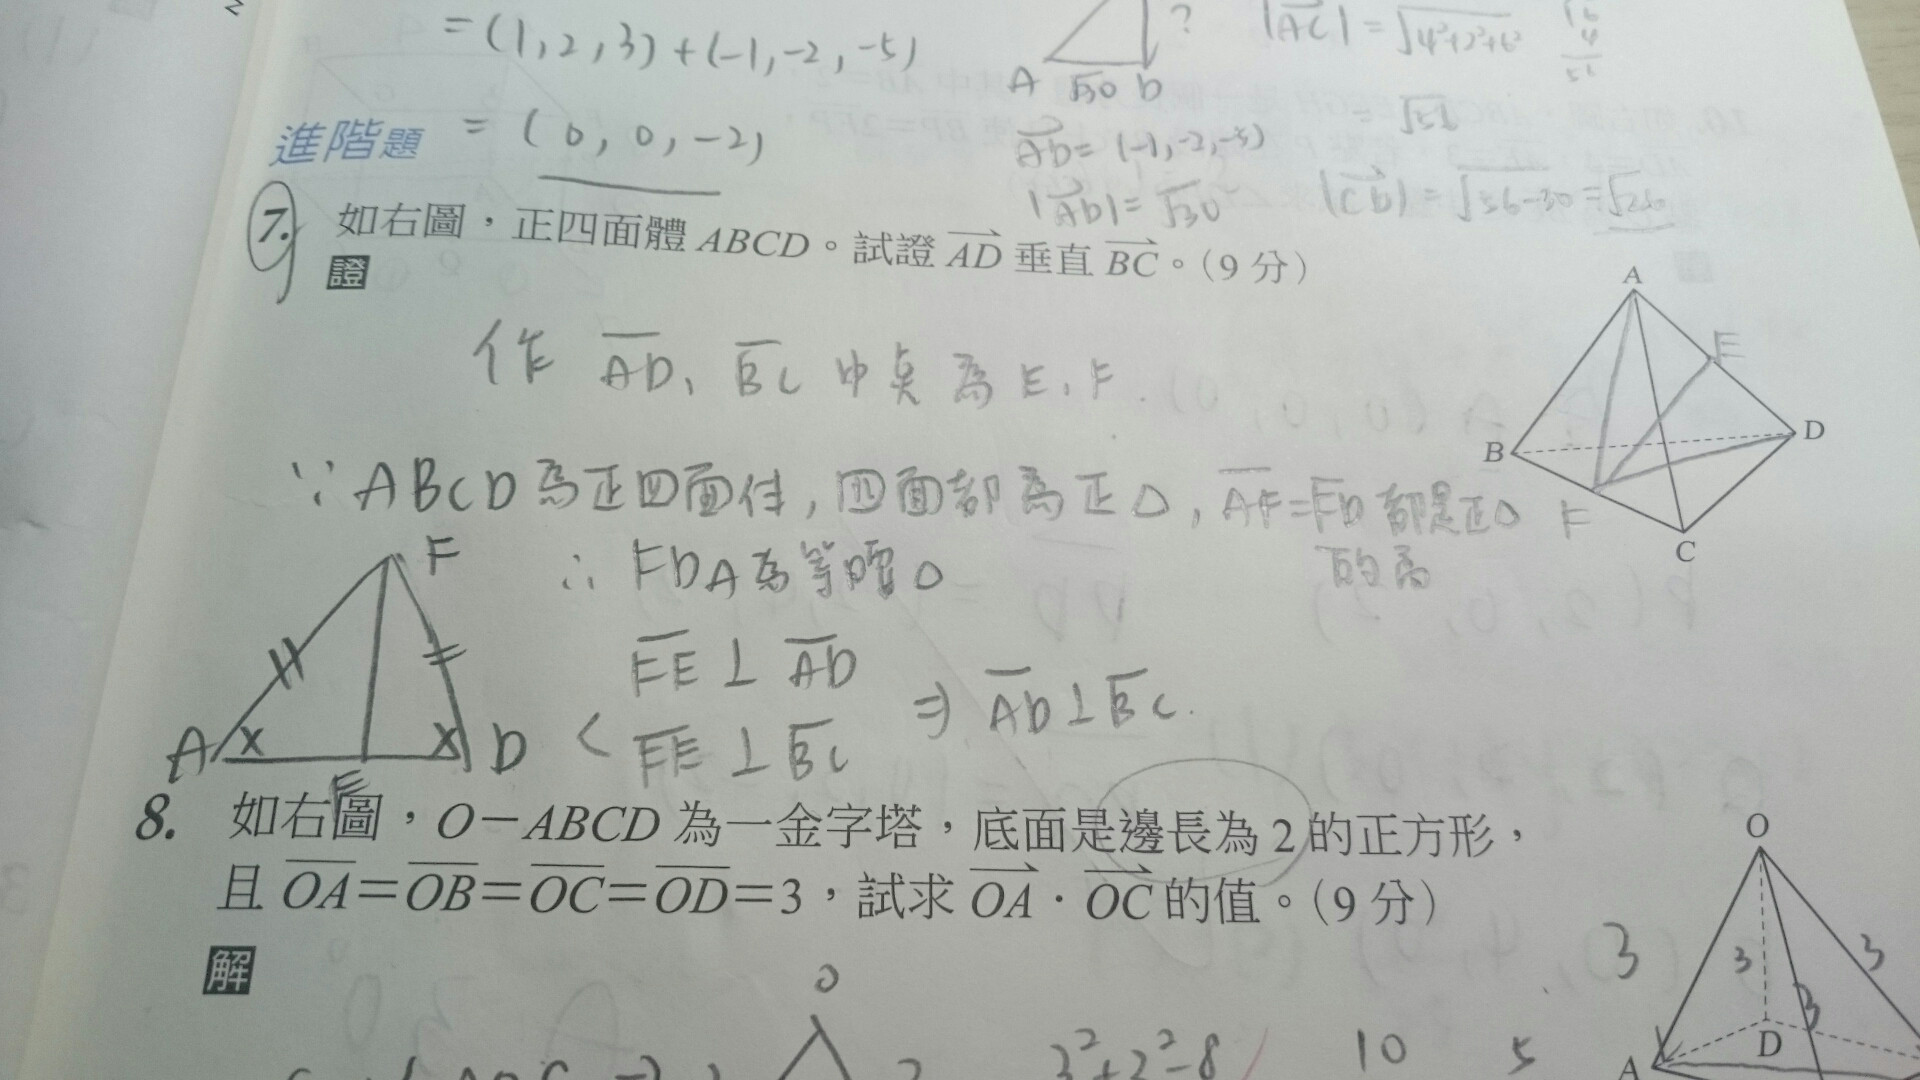 =(1,2,3)+(-1,-2,-5)
= (0,0,-2)
?
A √30 D
|AC| = √4²+2²+6²
= √56
AD = (-1,-2,-5)
|AD| = √30
|CD| = √56-30 = √26
進階題
7. 如右圖，正四面體 ABCD。試證 AD 垂直 BC。(9 分)
證
作 AD、BC 中點為 E、F
∵ ABCD 為正四面体, 四面都為正△, AF=FD 都是正△
的高
∴ FDA為等腰△
FE⊥AD
FE⊥BC
⇒ AD⊥BC.
F
A E D
A
E
B D
F
C
8. 如右圖，O－ABCD 為一金字塔，底面是邊長為 2 的正方形，
且 OA＝OB＝OC＝OD＝3，試求 OA · OC 的值。(9 分)
解
O
3²+3²-8
10
5
O
3 3 3
3
A D